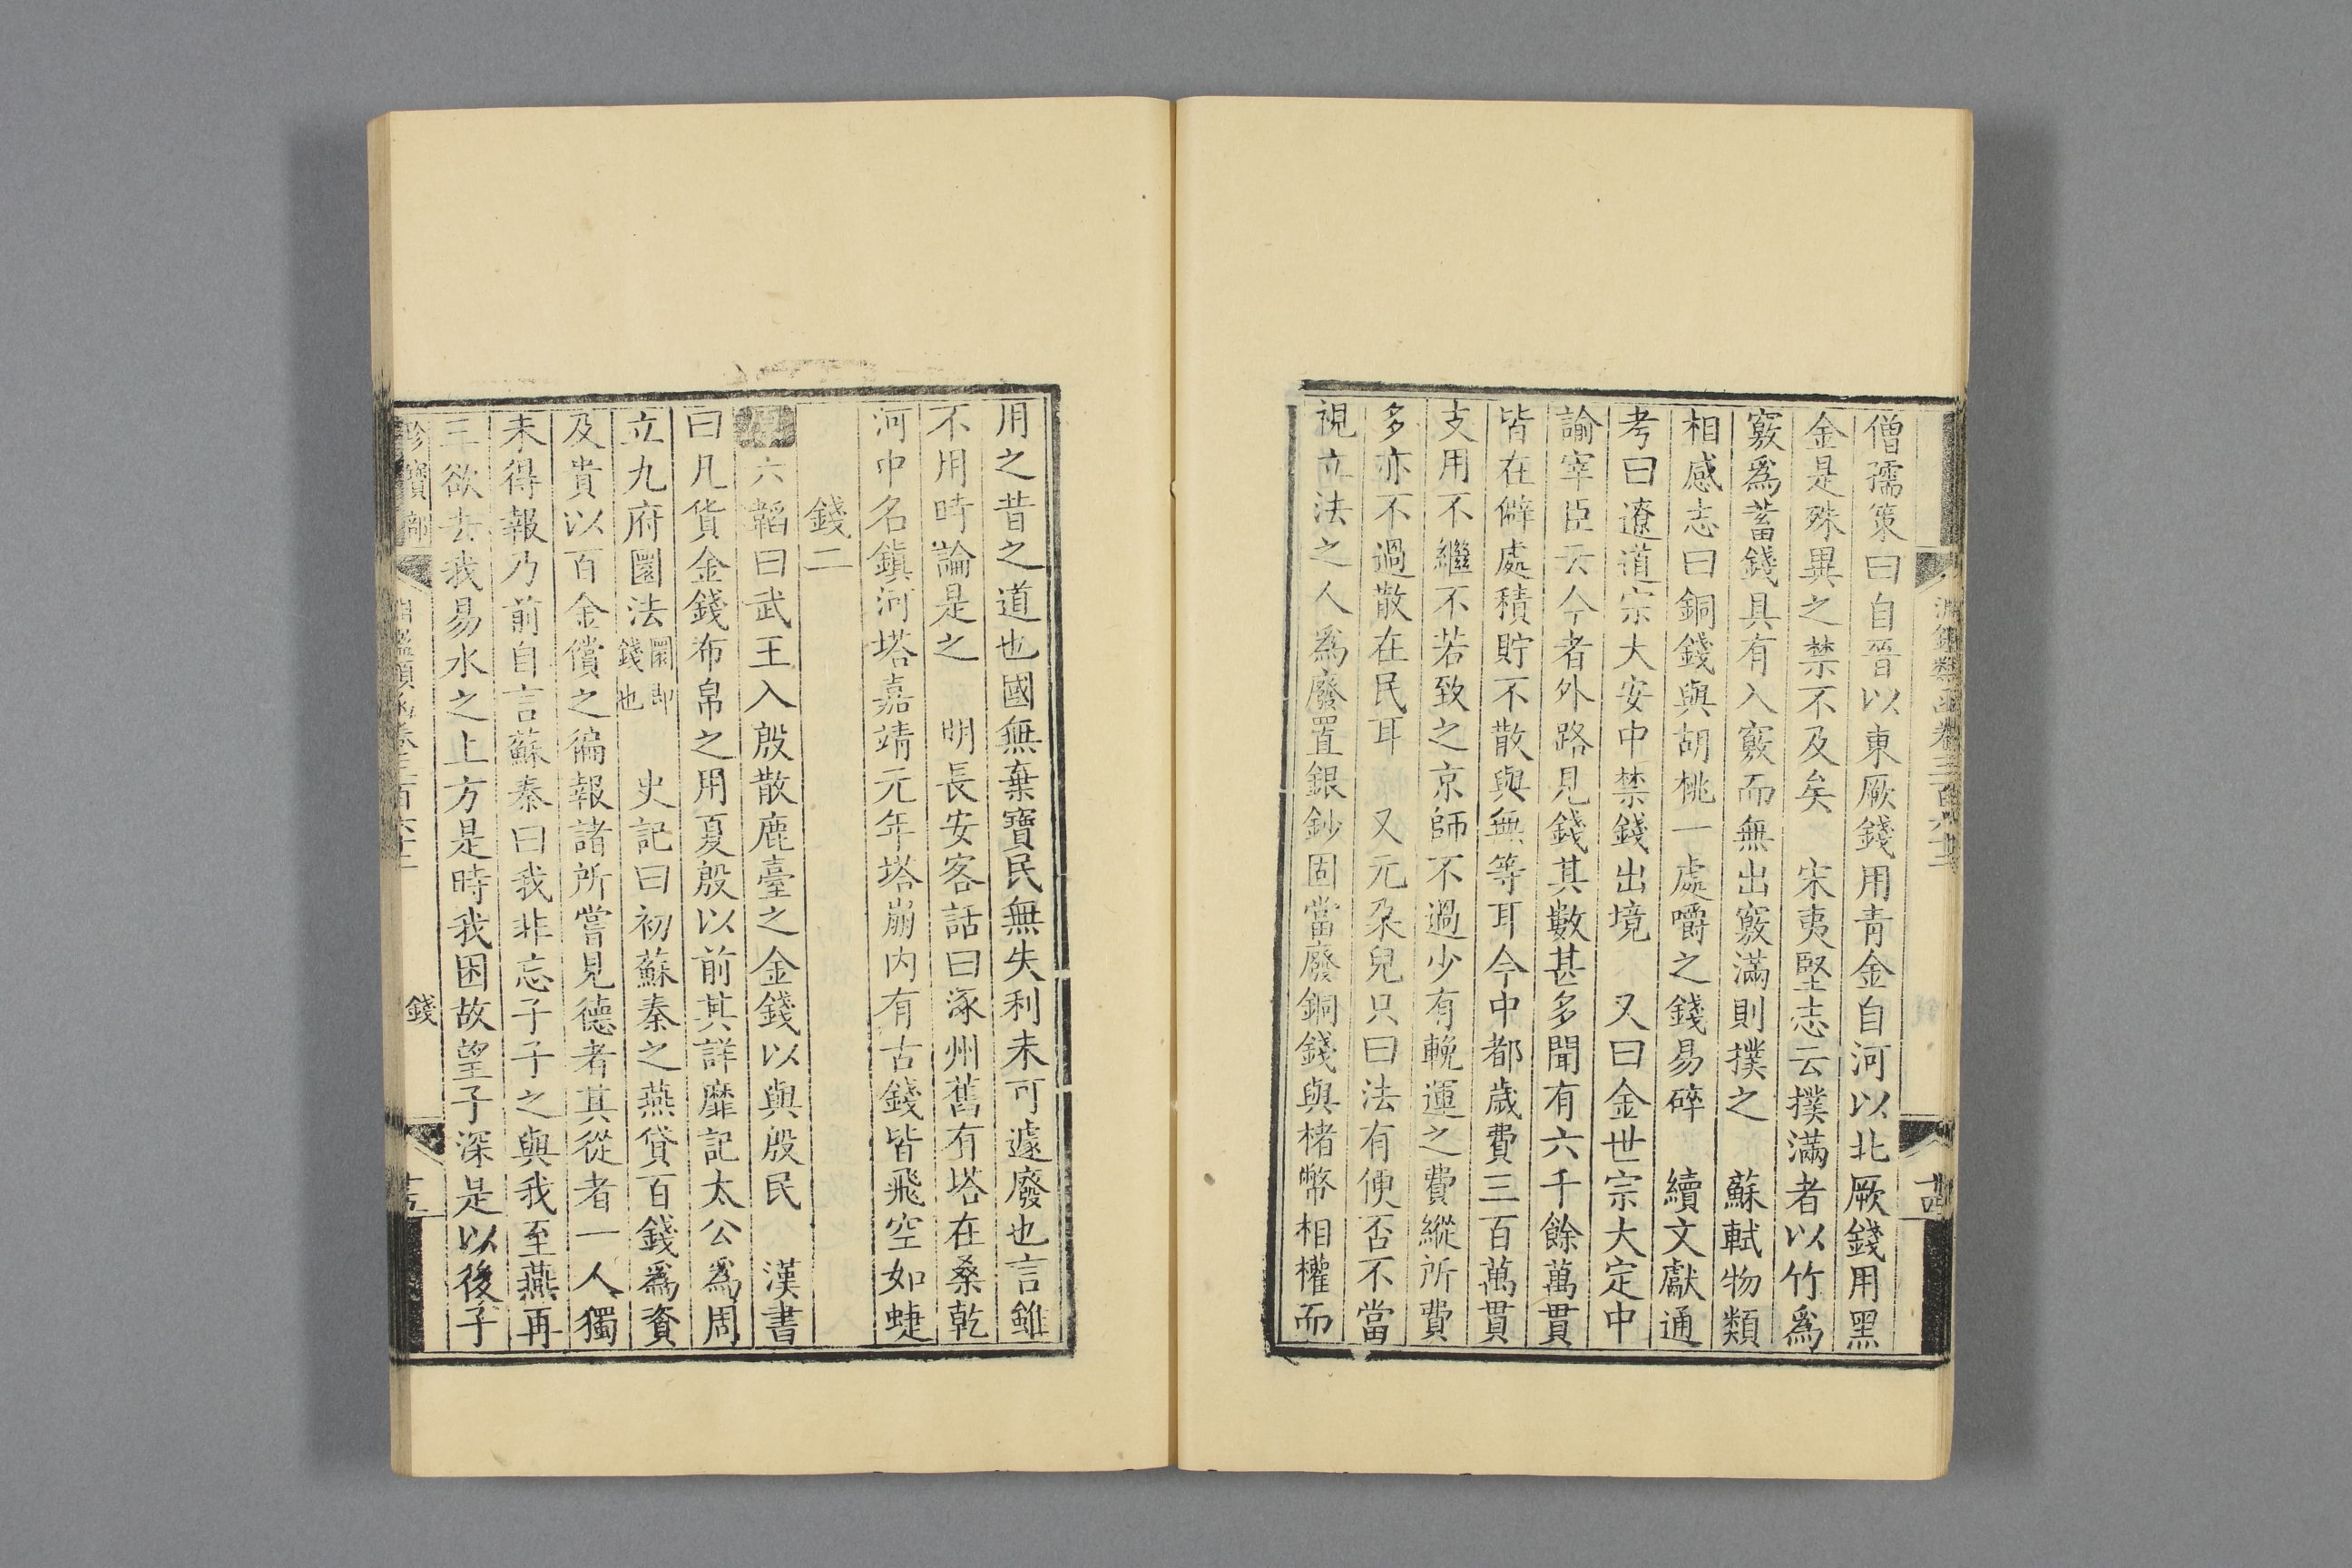 僧孺策曰自晉以東厥錢用青金自河以北厥錢用黑
金是殊異之禁不及矣　宋夷堅志云撲滿者以竹爲
竅爲蓄錢具有入竅而無出竅滿則撲之　蘇軾物類
相感志曰銅錢與胡桃一處嚼之錢易碎　續文獻通
考曰遼道宗大安中禁錢出境　又曰金世宗大定中
諭宰臣云今者外路見錢其數甚多聞有六千餘萬貫
皆在僻處積貯不散與無等耳今中都歲費三百萬貫
支用不繼不若致之京師不過少有輓運之費縱所費
多亦不過散在民耳　又元朶兒只曰法有便否不當
視立法之人爲廢置銀鈔固當廢銅錢與楮幣相權而
用之昔之道也國無棄寶民無失利未可遽廢也言雖
不用時論是之　明長安客話曰涿州舊有塔在桑乾
河中名鎮河塔嘉靖元年塔崩内有古錢皆飛空如蜨
錢二
六韜曰武王入殷散鹿臺之金錢以與殷民　漢書
曰凡貨金錢布帛之用夏殷以前其詳靡記太公爲周
立九府圜法圜即錢也　史記曰初蘇秦之燕貸百錢爲資
及貴以百金償之徧報諸所嘗見德者其從者一人獨
未得報乃前自言蘇秦曰我非忘子子之與我至燕再
三欲去我易水之上方是時我困故望子深是以後子
珍寶部
錢